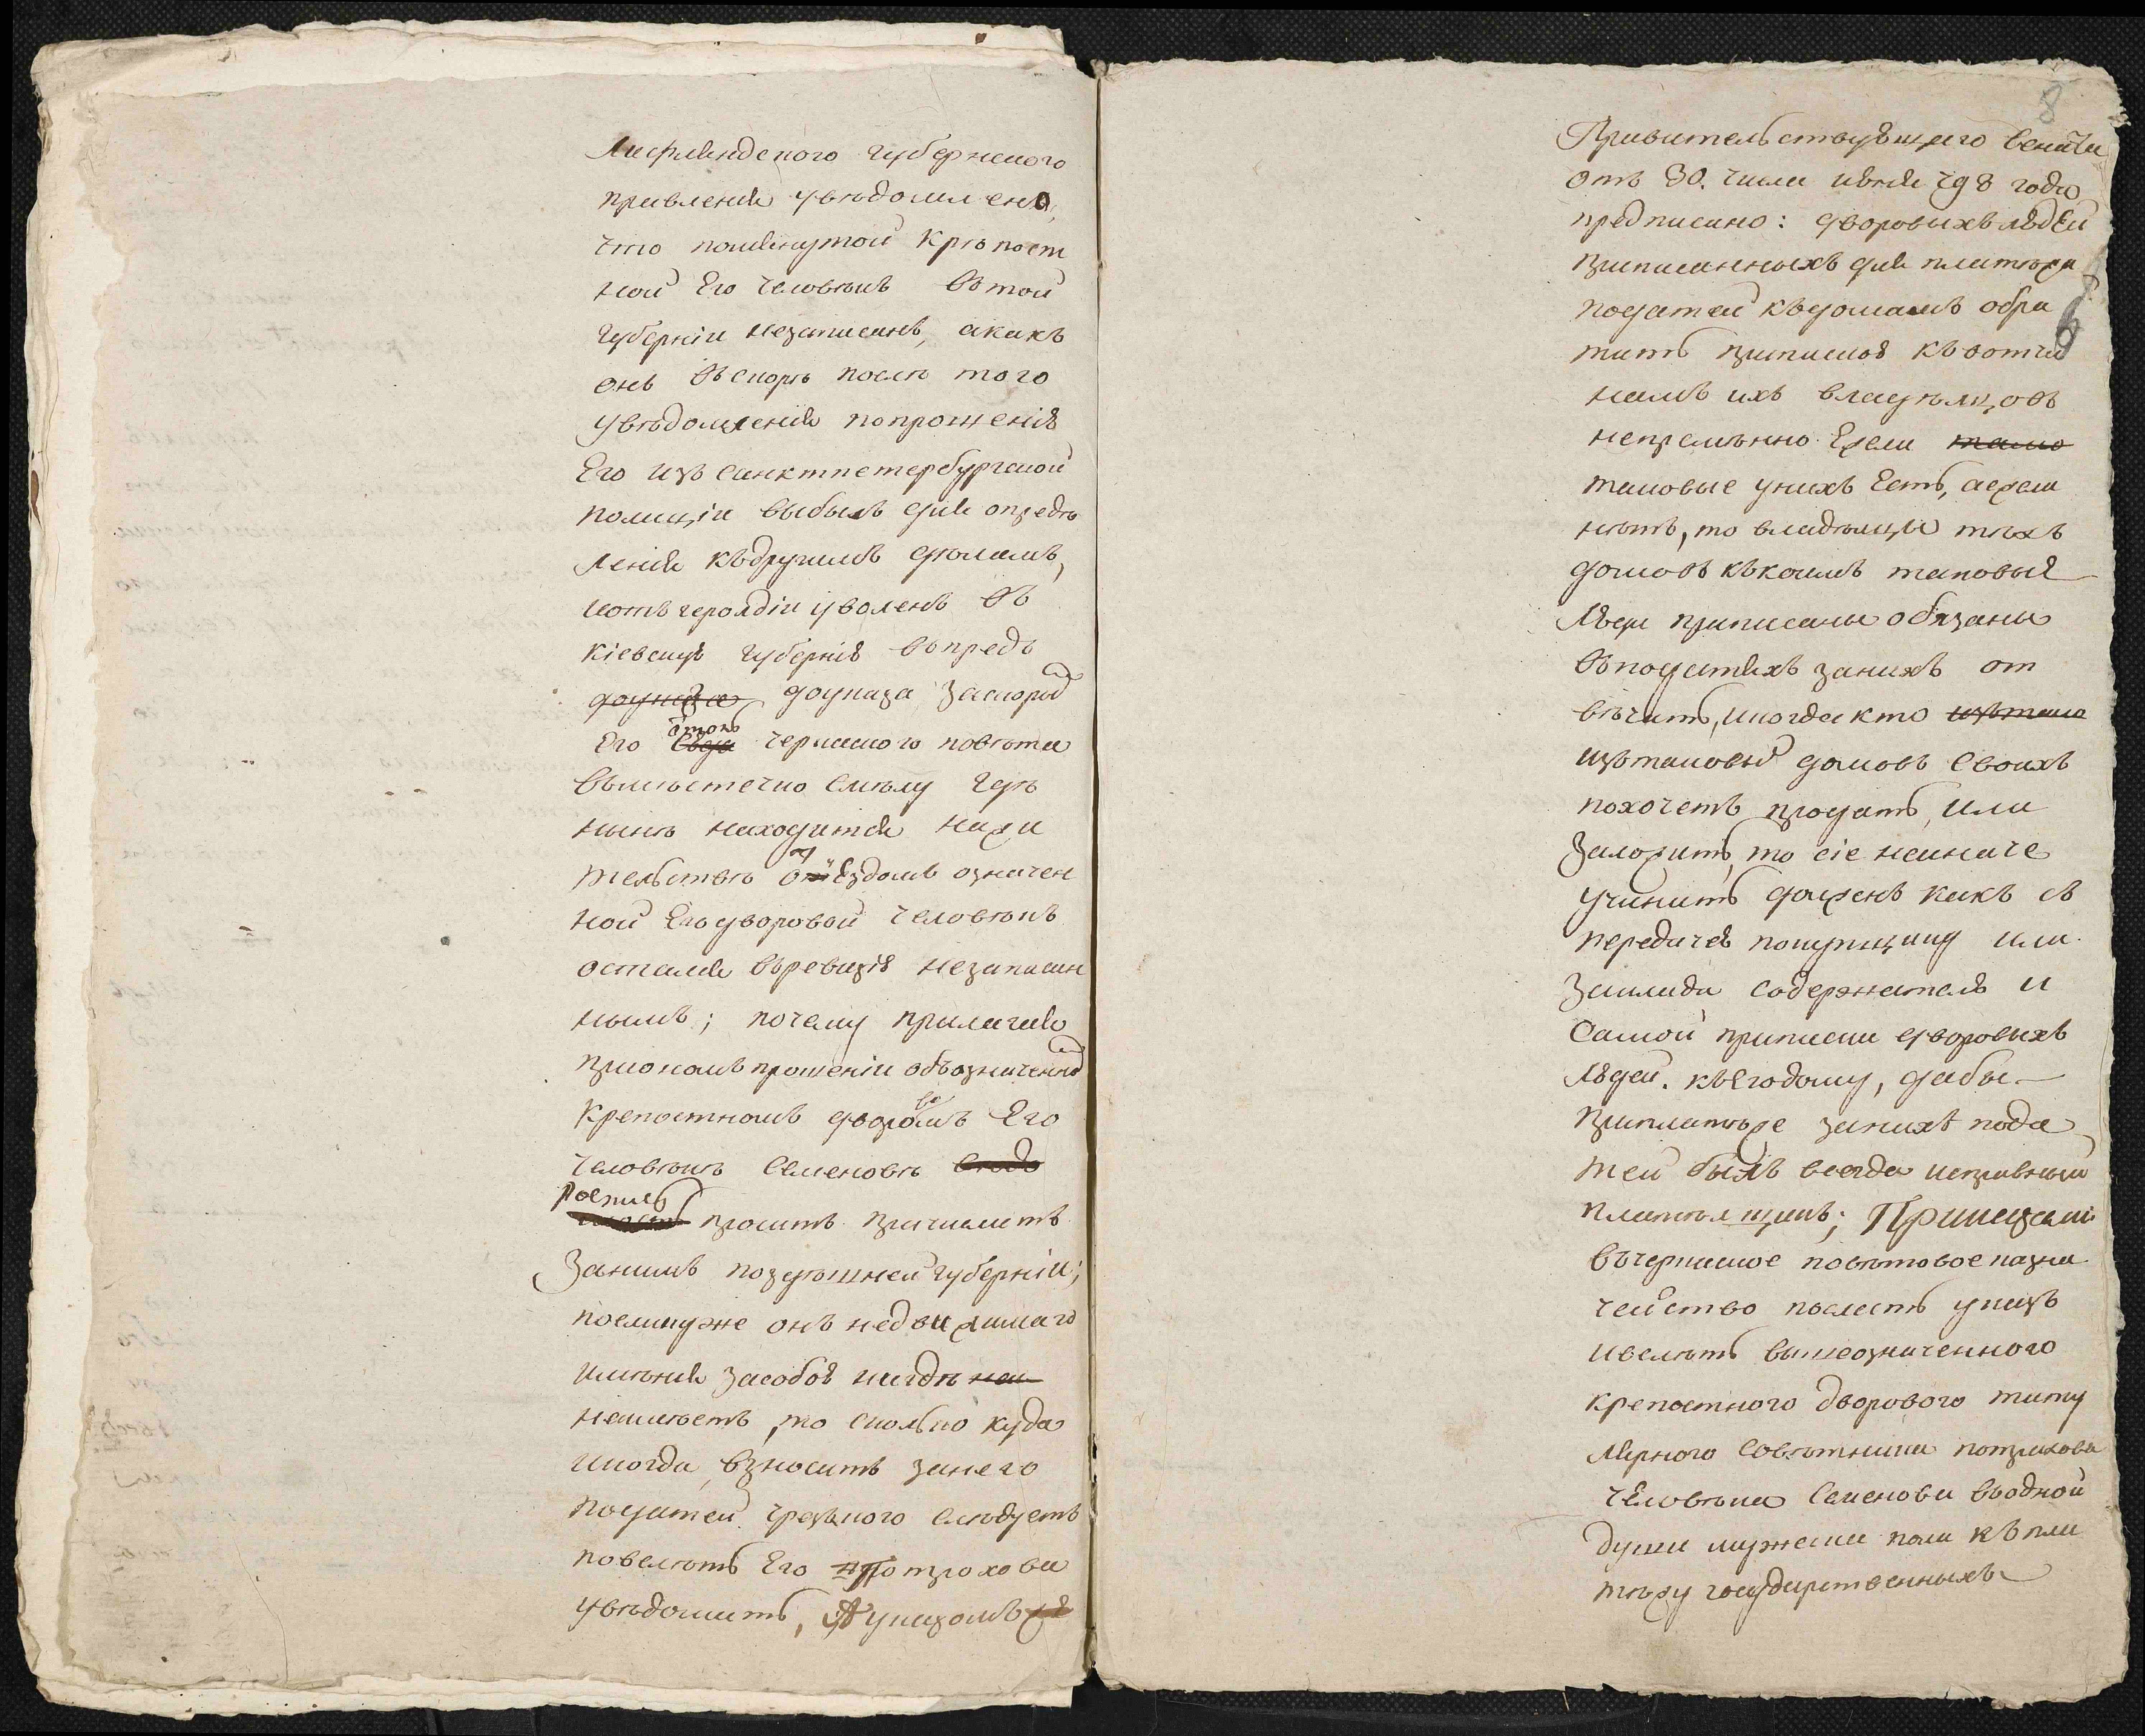 Лифляндского губернского
правления увѣдомлено,
что помянутой крѣпост
ной Его человѣкъ вътой
губерніи незаписанъ, акакъ
онъ въскорѣ послѣ того
увѣдомления попрошенію
Его изъ санктпетербургской
полиціи выбылъ для опредѣ
ления кдругимъ дѣламъ,
иотъ герольдіи уволенъ въ
кіевскую губернію впредь
доуказа доуказа, заскорой
Его столь черкаского повѣта
вмѣстечко Смѣлу гдѣ
нынѣ находится нажи
тельствѣ отъѣздомъ означен
ной Его дворовой человѣкъ
остался въревизію незаписан
нымъ; почему прилагая
приономъ прошеніи обозначенной
крепостномъ дворовомъ Его
человѣкѣ Семеновѣ
проситъ причислить
Занимъ поздѣшней губерніи;
поелику же онъ недвижимаго
имѣния засобою нигдѣ
неимѣетъ, то сколько куда
икогда взносить занего
податей чрезъкого слѣдуетъ
повелѣть Его Потрохова
увѣдомить, А указомъ
Правительствующаго Сената
отъ 30. числа июня 798 года
предписано: дворовыхъ людей
приписанныхъ для платежа
податей къдомамъ обра
тить припискою къвотчи
намъ ихъ владѣльцовъ
непремѣнно Ежели тамо
таковые унихъ Есть, аежели
нѣтъ, то владѣльцы тѣхъ
домовъ къкоимъ таковыя
Люди приписаны обязаны
въподатяхъ занихъ от
вѣчать, икогда кто изътако
изътаковыхъ домовъ своихъ
похочетъ продать, или
Заложить, то сіе неиначе
учинить долженъ какъ съ
передачею покупщику или
Заклада содержателю и
самой приписки дворовыхъ
Людей. къЕгодому, дабы
приплатеже занихъ пода
тей былъ всегда исправный
плательщикъ; Приказали
въчеркаское повѣтовое казна
чейство послать указъ
ивелѣть вышеозначенного
крепостного дворового титу
лярного совѣтника потрохова
человѣка Семенова водной
души мужеска пола къпла
тежу государственныхъ